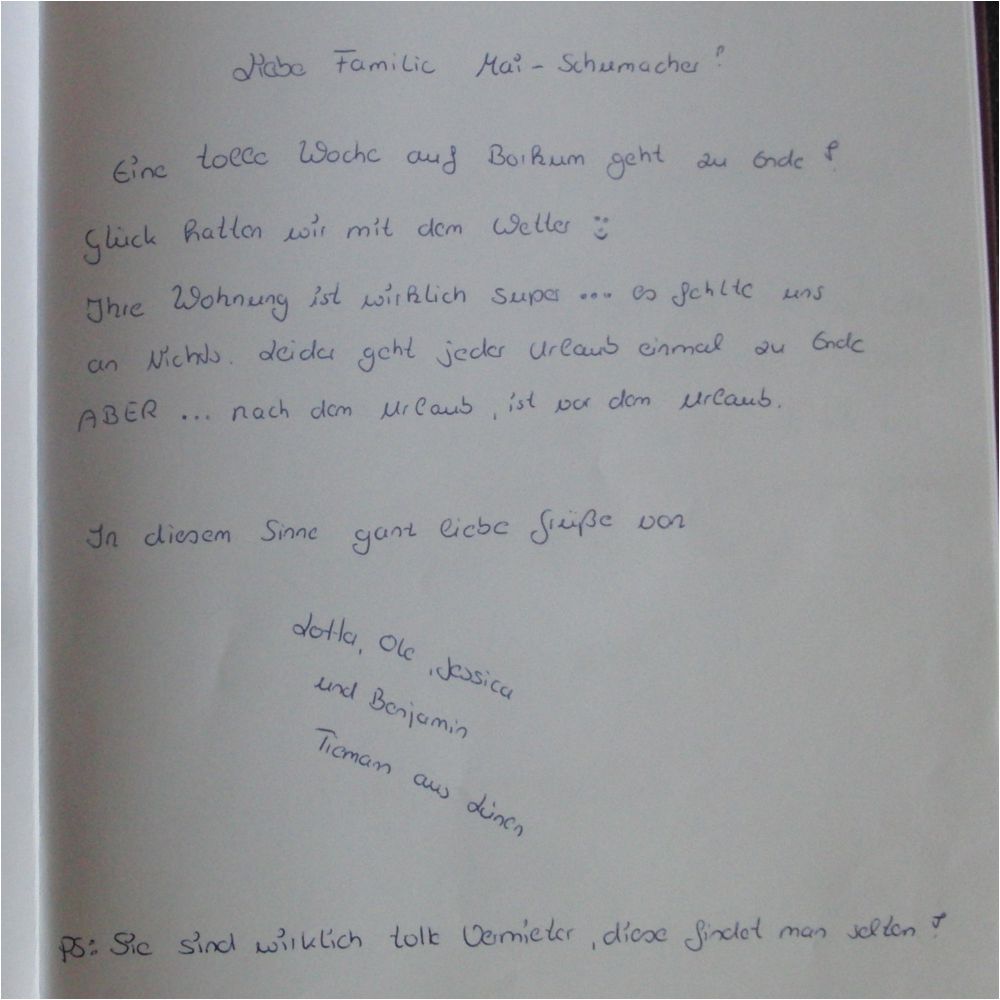 Liebe Familie Mai-Schumacher!
Eine tolle Woche auf Borkum geht zu Ende!
Glück hatten wir mit dem Wetter :)
Ihre Wohnung ist wirklich super ... es fehlte uns
an Nichts. Leider geht jeder Urlaub einmal zu Ende
ABER ... nach dem Urlaub, ist vor dem Urlaub.
In diesem Sinne ganz liebe Grüße von
Lotta, Ole, Jessica
und Benjamin
Tieman aus Lünen
PS: Sie sind wirklich tolle Vermieter, diese findet man selten!